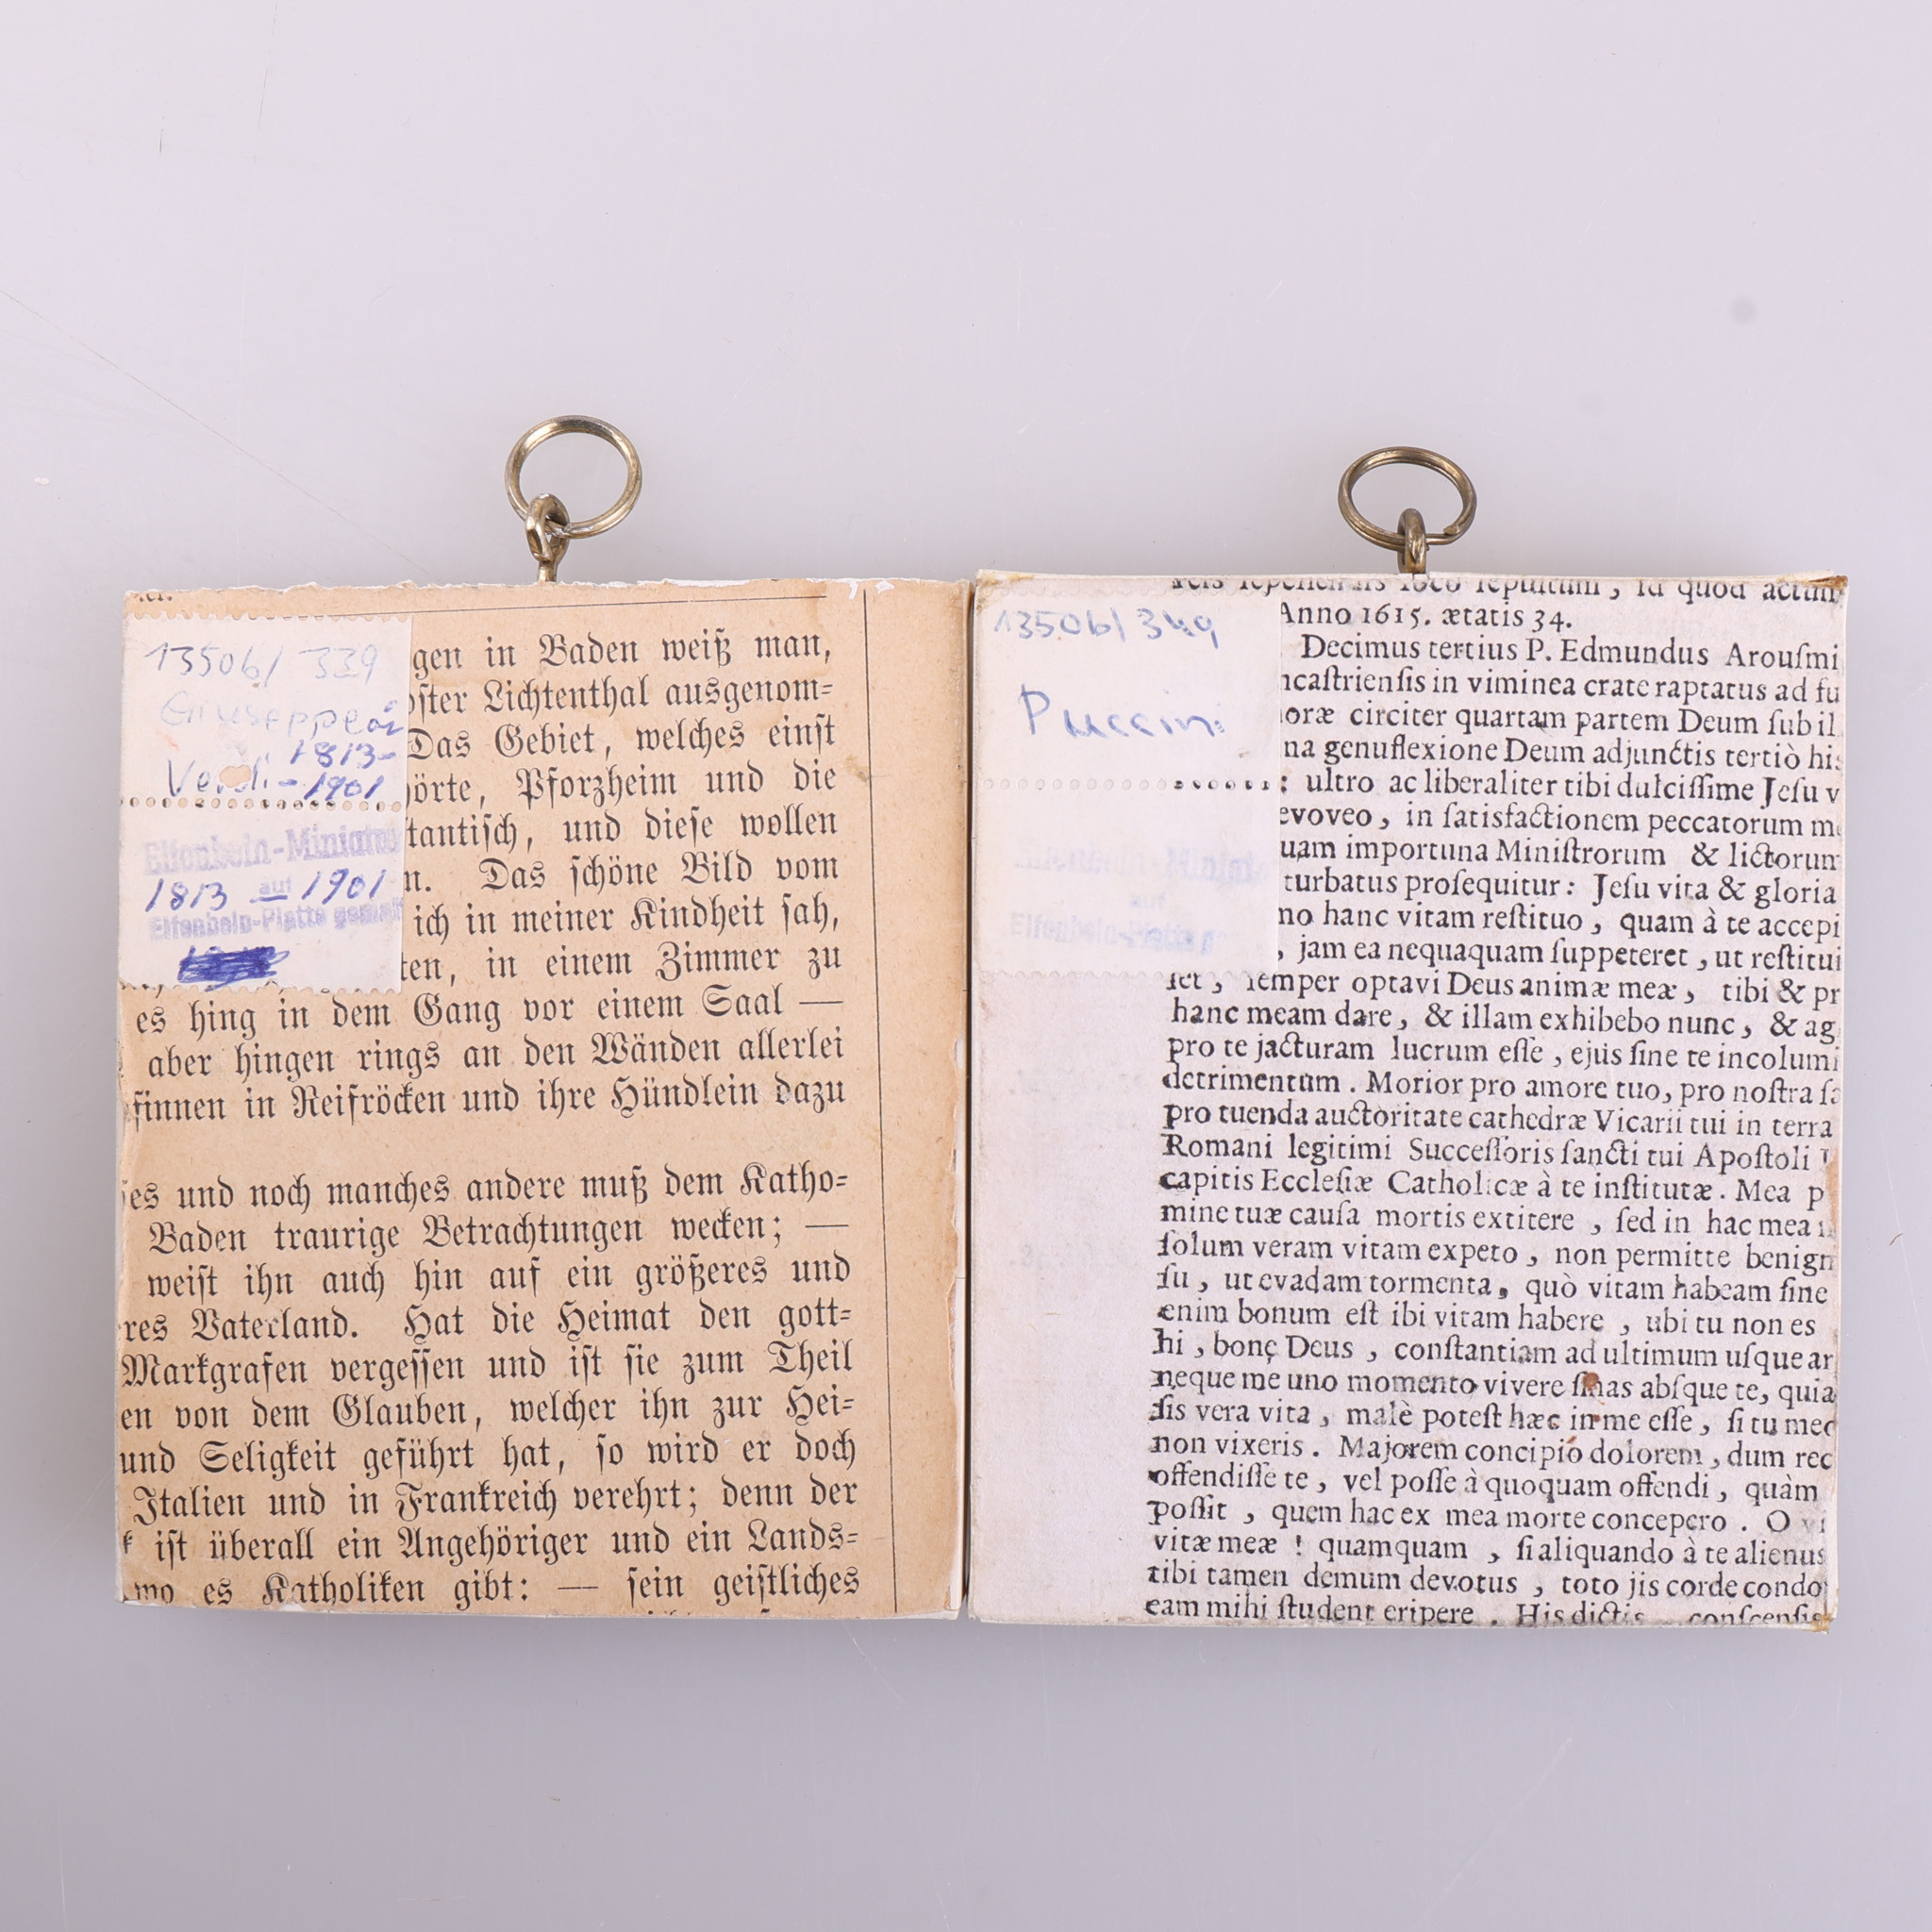 13506/ 339
Giuseppe
1813-
Verdi -1901
Elfenbein-Miniatur
auf
1813 — 1901
Elfenbein-Platte gemalt
gen in Baden weiß man,
ster Lichtenthal ausgenom=
Das Gebiet, welches einst
örte, Pforzheim und die
tantisch, und diese wollen
n. Das schöne Bild vom
ich in meiner Kindheit sah,
ten, in einem Zimmer zu
es hing in dem Gang vor einem Saal —
aber hingen rings an den Wänden allerlei
finnen in Reifröcken und ihre Hündlein dazu
es und noch manches andere muß dem Katho=
Baden traurige Betrachtungen wecken; —
weist ihn auch hin auf ein größeres und
res Vaterland. Hat die Heimat den gott=
Markgrafen vergessen und ist sie zum Theil
en von dem Glauben, welcher ihn zur Hei=
und Seligkeit geführt hat, so wird er doch
Italien und in Frankreich verehrt; denn der
k ist überall ein Angehöriger und ein Lands=
wo es Katholiken gibt: — sein geistliches
13506/ 349
Puccini
Elfenbein-Miniatur
auf
Elfenbein-Platte
loco sepultum, id quod actum
Anno 1615. ætatis 34.
Decimus tertius P. Edmundus Arouſmi
ncaſtrienſis in viminea crate raptatus ad fu
oræ circiter quartam partem Deum ſub il
na genuflexione Deum adjunctis tertiò his
: ultro ac liberaliter tibi dulciſſime Jeſu v
evoveo, in ſatisfactionem peccatorum me
uam importuna Miniſtrorum & lictorum
turbatus proſequitur: Jeſu vita & gloria
no hanc vitam reſtituo, quam à te accepi
, jam ea nequaquam ſuppeteret, ut reſtitui
ſet, ſemper optavi Deus animæ meæ, tibi & pr
hanc meam dare, & illam exhibebo nunc, & ag
pro te jacturam lucrum eſſe, ejus ſine te incolumi
detrimentum. Morior pro amore tuo, pro noſtra ſa
pro tuenda auctoritate cathedræ Vicarii tui in terra
Romani legitimi Succeſſoris ſancti tui Apoſtoli
capitis Eccleſiæ Catholicæ à te inſtitutæ. Mea p
mine tuæ cauſa mortis extitere, ſed in hac mea
ſolum veram vitam expeto, non permitte benign
ſu, ut evadam tormenta, quò vitam habeam ſine
enim bonum eſt ibi vitam habere, ubi tu non es
hi, bone Deus, conſtantiam ad ultimum uſque ar
neque me uno momento vivere ſinas abſque te, quia
ſis vera vita, malè poteſt hæc in me eſſe, ſi tu mec
non vixeris. Majorem concipio dolorem, dum rec
offendiſſe te, vel poſſe à quoquam offendi, quàm
poſſit, quem hac ex mea morte concepero. O vi
vitæ meæ! quamquam, ſi aliquando à te alienus
tibi tamen demum devotus, toto jis corde condo
eam mihi ſtudent eripere. His dictis conſcenſis